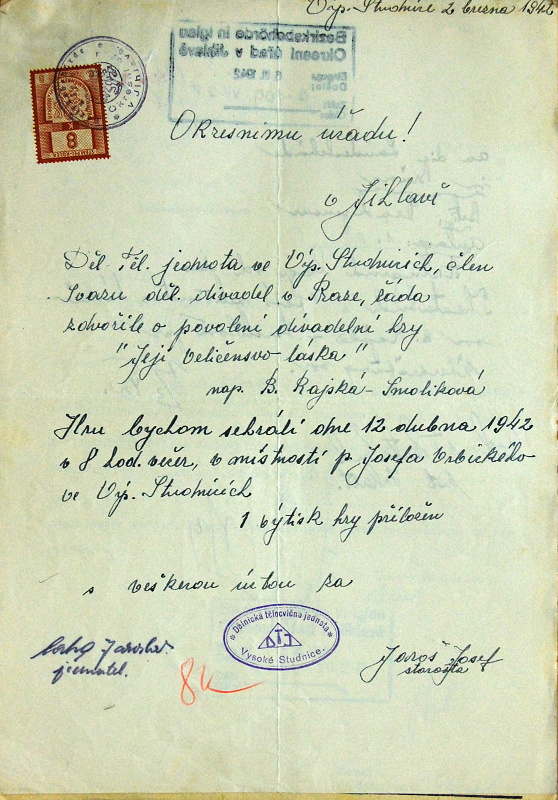 Výs. Studnice 2 března 1942
Okresnímu úřadu!
v Jihlavě
Děl. Těl. jednota ve Výs. Studnicích, člen
Svazu děl. divadel v Praze, žádá
zdvořile o povolení divadelní hry
"Její veličenstvo láska"
nap. B. Rajská-Smolíková
Hru bychom sehráli dne 12 dubna 1942
v 8 hod. večer, v místnosti p. Josefa Vrbického
ve Výs. Studnicích
1 výtisk hry přiložen
s veškerou úctou za
Dělnická tělocvičná jednota
DTJ
Vysoké Studnice.
Jaroslav
jednatel.
8 K
Jaroš Josef
starosta
Bezirksbehörde in Iglau
Okresní úřad v Jihlavě
1942
8